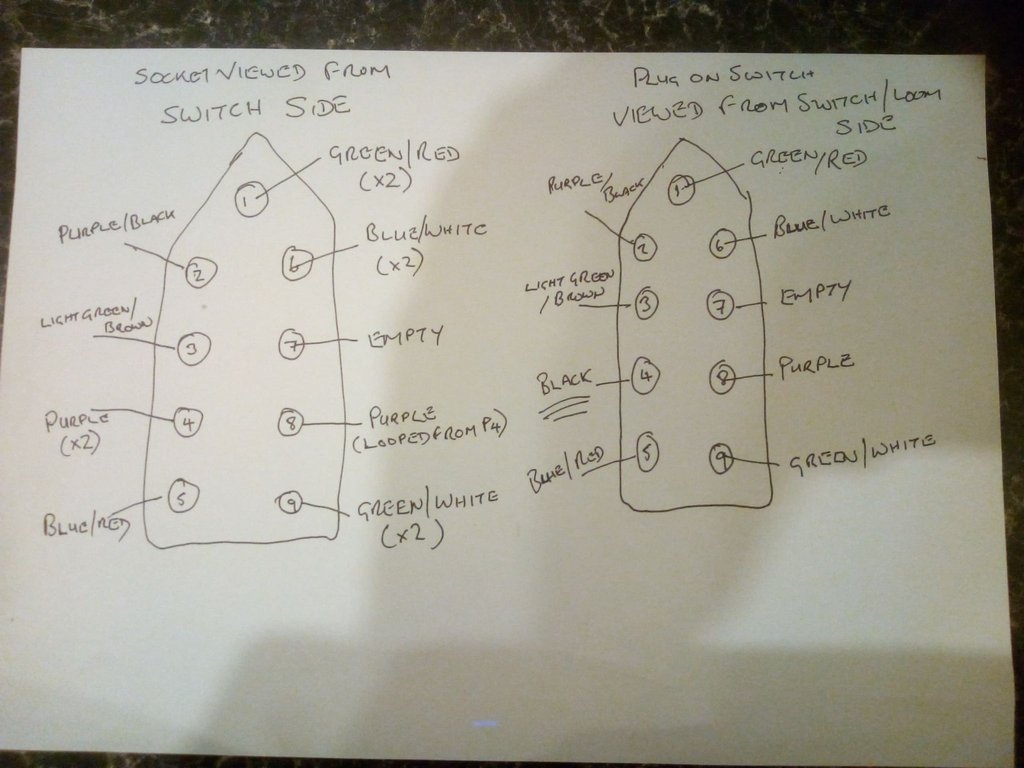 SOCKET VIEWED FROM
SWITCH SIDE
GREEN/RED
(x2)
1
PURPLE/BLACK
2
BLUE/WHITE
(x2)
6
LIGHT GREEN/
BROWN
3
7
EMPTY
PURPLE
(x2)
4
8
PURPLE
(LOOPED FROM P4)
BLUE/RED
5
9
GREEN/WHITE
(x2)
PLUG ON SWITCH
VIEWED FROM SWITCH/LOOM
SIDE
GREEN/RED
1
PURPLE/
BLACK
2
6
BLUE/WHITE
LIGHT GREEN
/BROWN
3
7
EMPTY
BLACK
4
8
PURPLE
BLUE/RED
5
9
GREEN/WHITE